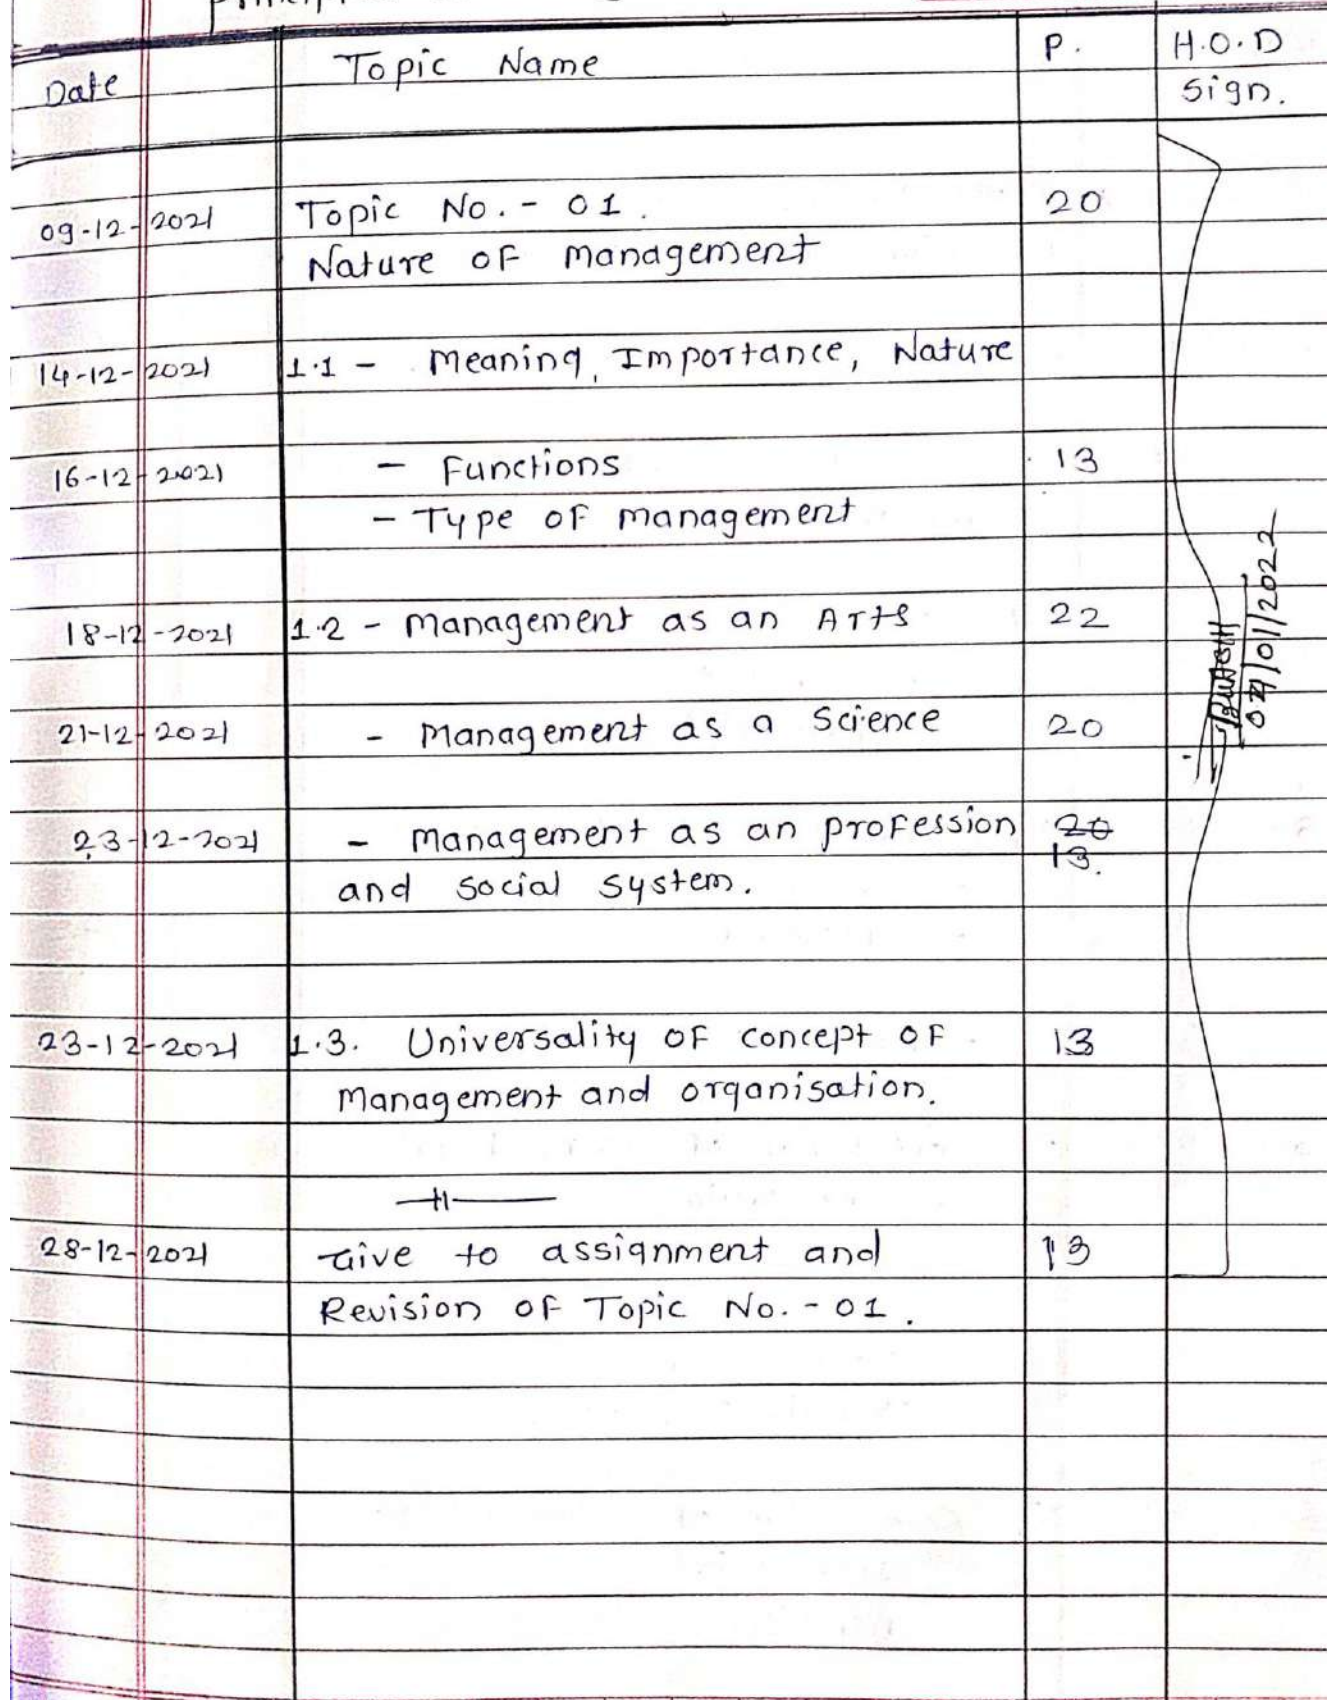 Date Topic Name P. H.O.D
Sign.
09-12-2021 Topic No. - 01. 20
Nature of management
14-12-2021 1.1 - Meaning, Importance, Nature
16-12-2021 - Functions 13
- Type of management
18-12-2021 1.2 - Management as an Arts 22
21-12-2021 - Management as a Science 20
23-12-2021 - Management as an profession 20
13.
and social system.
23-12-2021 1.3. Universality of concept of 13
Management and organisation.
28-12-2021 Give to assignment and 13
Revision of Topic No. - 01.